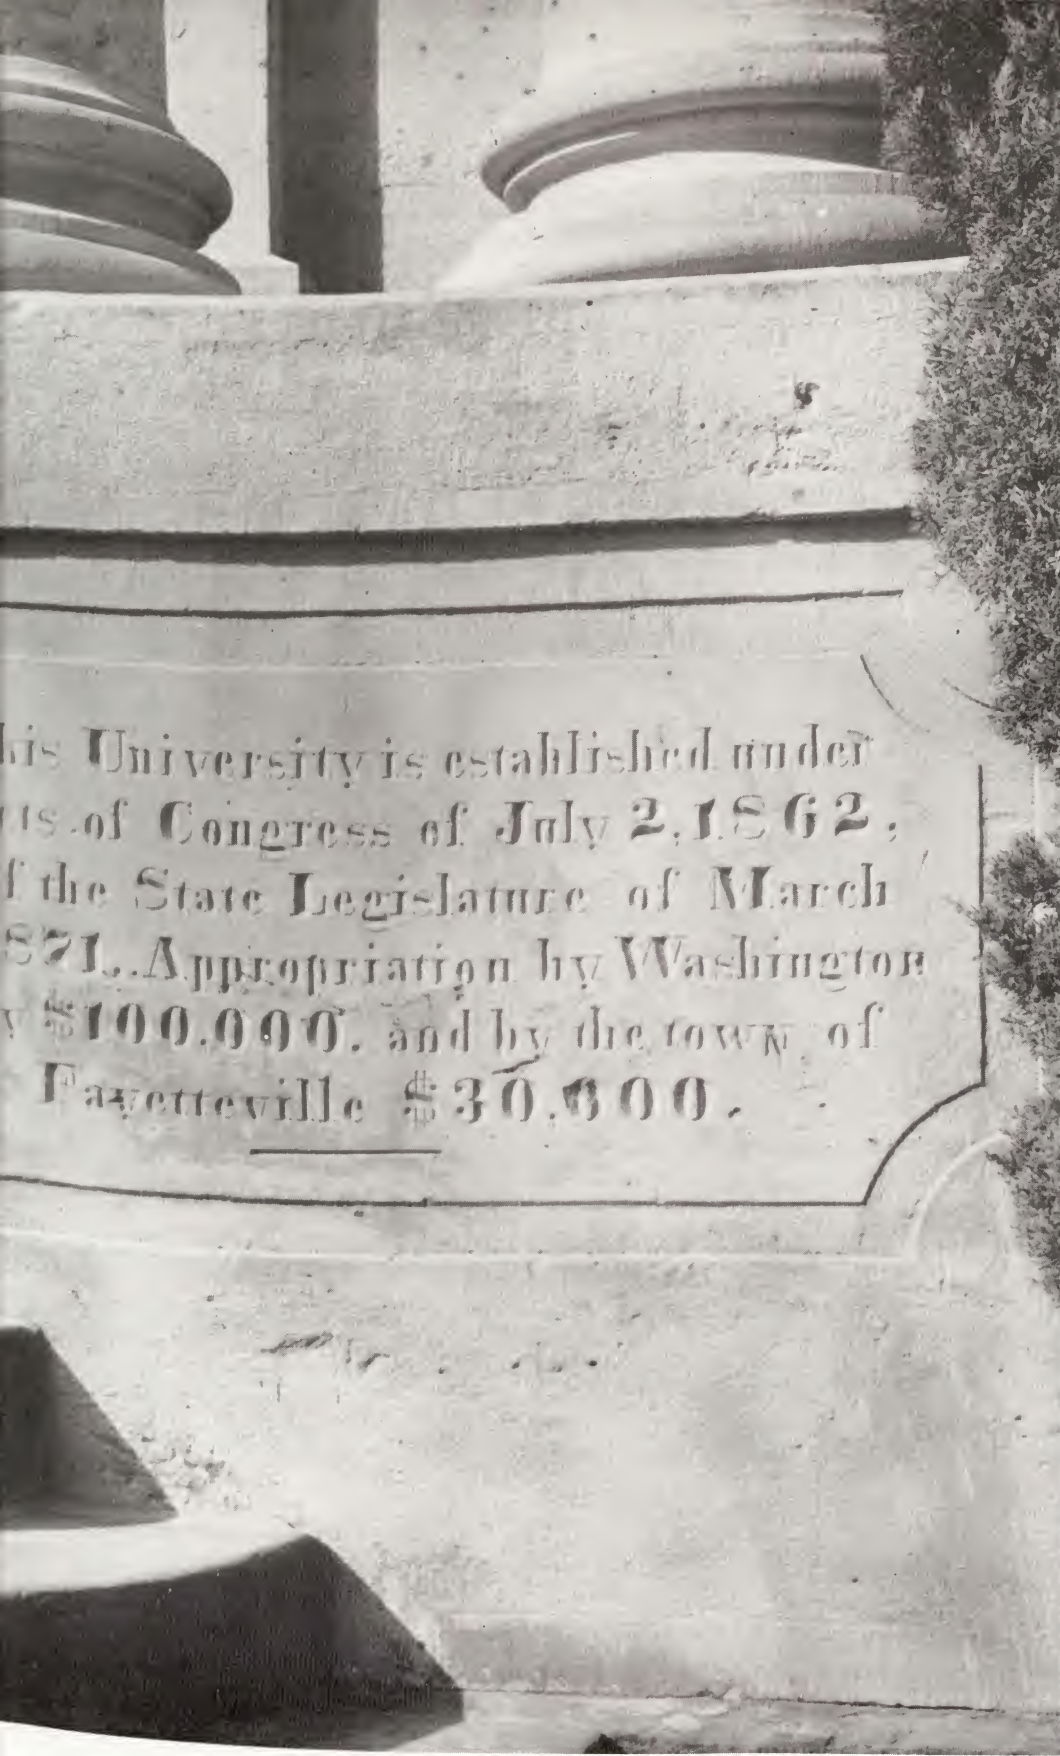 his University is established under
ts of Congress of July 2, 1862,
f the State Legislature of March
871,. Appropriation by Washington
y $100.000. and by the town of
Fayetteville $30.000.